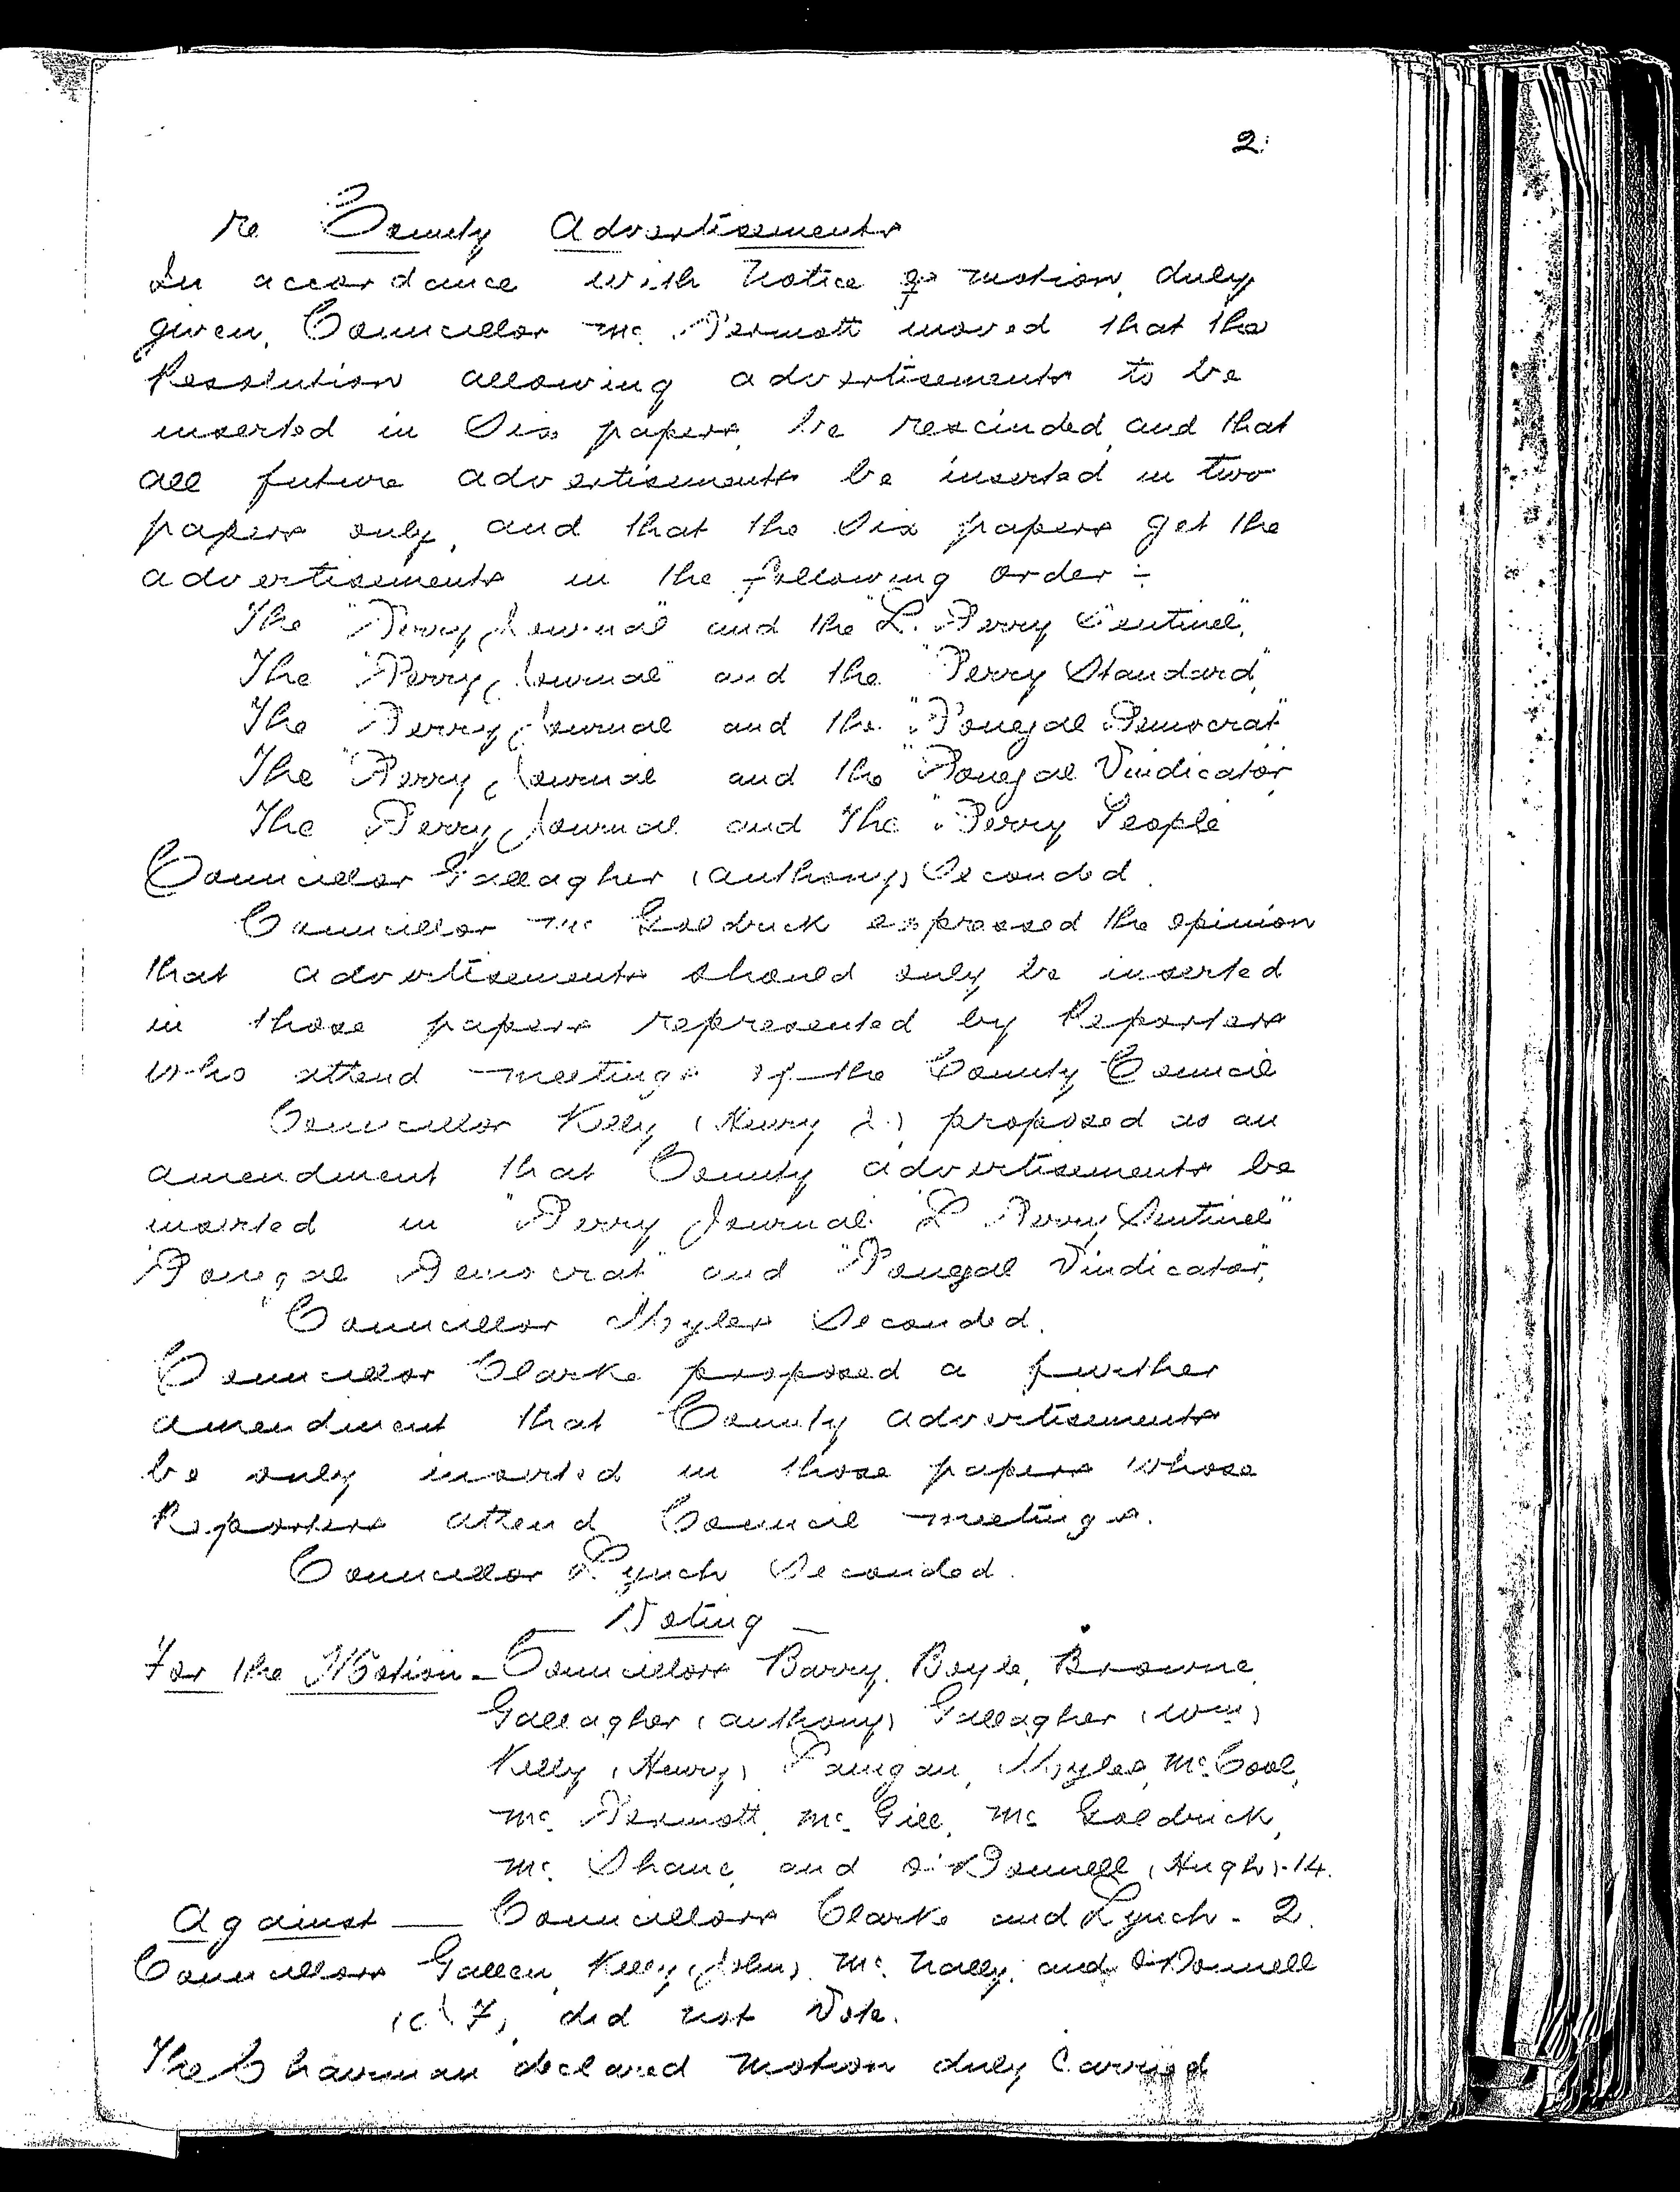 2.
re County Advertisements
In accordance with notice of motion, duly
given, Councillor Mc. Dermott moved that the
Resolution allowing advertisements to be
inserted in Six papers, be rescinded, and that
all future advertisements be inserted in two
papers only, and that the Six papers get the
advertisements in the following order :-
The "Derry Journal" and the "L. Derry Sentinel",
The "Derry Journal" and the "Derry Standard",
The "Derry Journal and the "Donegal Democrat"
The "Derry Journal and the "Donegal Vindicator"
The Derry Journal and The "Derry People
Councillor Gallagher (Anthony) Seconded.
Councillor Mc Goldrick expressed the opinion
that advertisements should only be inserted
in those papers represented by Reporters
who attend meetings of the County Council
Councillor Kelly (Henry J.) proposed as an
amendment that County advertisements be
inserted in "Derry Journal" "L Derry Sentinel"
"Donegal Democrat" and "Donegal Vindicator",
Councillor Myles Seconded.
Councillor Clarke proposed a further
amendment that County advertisements
be only inserted in those papers whose
Reporters attend Council meetings.
Councillor Lynch Seconded.
— Voting —
For the Motion - Councillors Barry, Boyle, Browne,
Gallagher (Anthony) Gallagher (Wm)
Kelly (Henry) Lanigan, Myles, Mc. Cool,
Mc. Dermott, Mc. Gill, Mc Goldrick,
Mc. Shane, and O'Donnell (Hugh)-14.
Against — Councillors Clarke and Lynch - 2.
Councillors Gallen, Kelly (John), Mc. Nally, and O'Donnell
did not Vote.
The Chairman declared motion duly Carried